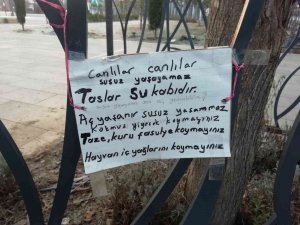 Canlılar canlılar
susuz yaşayamaz
Taslar Su kabıdır.
Aç yaşanır susuz yaşanmaz
Kokmuş yiyecek koymayınız
Taze, kuru fasulye koymayınız
Hayvan iç yağlarını koymayınız